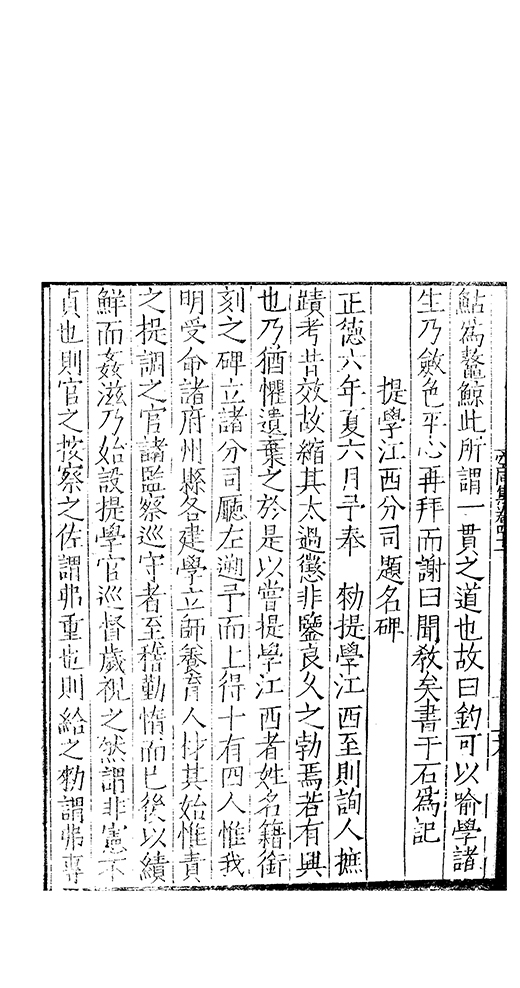 鮎為鼇鯨此所謂一貫之道也故曰釣可以喻學諸
生乃斂色平心再拜而謝曰聞敎矣書于石為記
提學江西分司題名碑
正德六年夏六月予奉　勑提學江西至則詢人摭
蹟考昔效故縮其太過懲非鑒良久之勃焉若有興
也乃猶懼遺棄之於是以嘗提學江西者姓名籍銜
刻之碑立諸分司廳左遡予而上得十有四人惟我
明受命諸府州縣各建學立師養育人材其始惟責
之提調之官諸監察巡守者至稽勤惰而已後以績
鮮而姦滋乃始設提學官巡督歲視之然謂非憲不
貞也則官之按察之佐謂弗重也則給之勑謂弗專